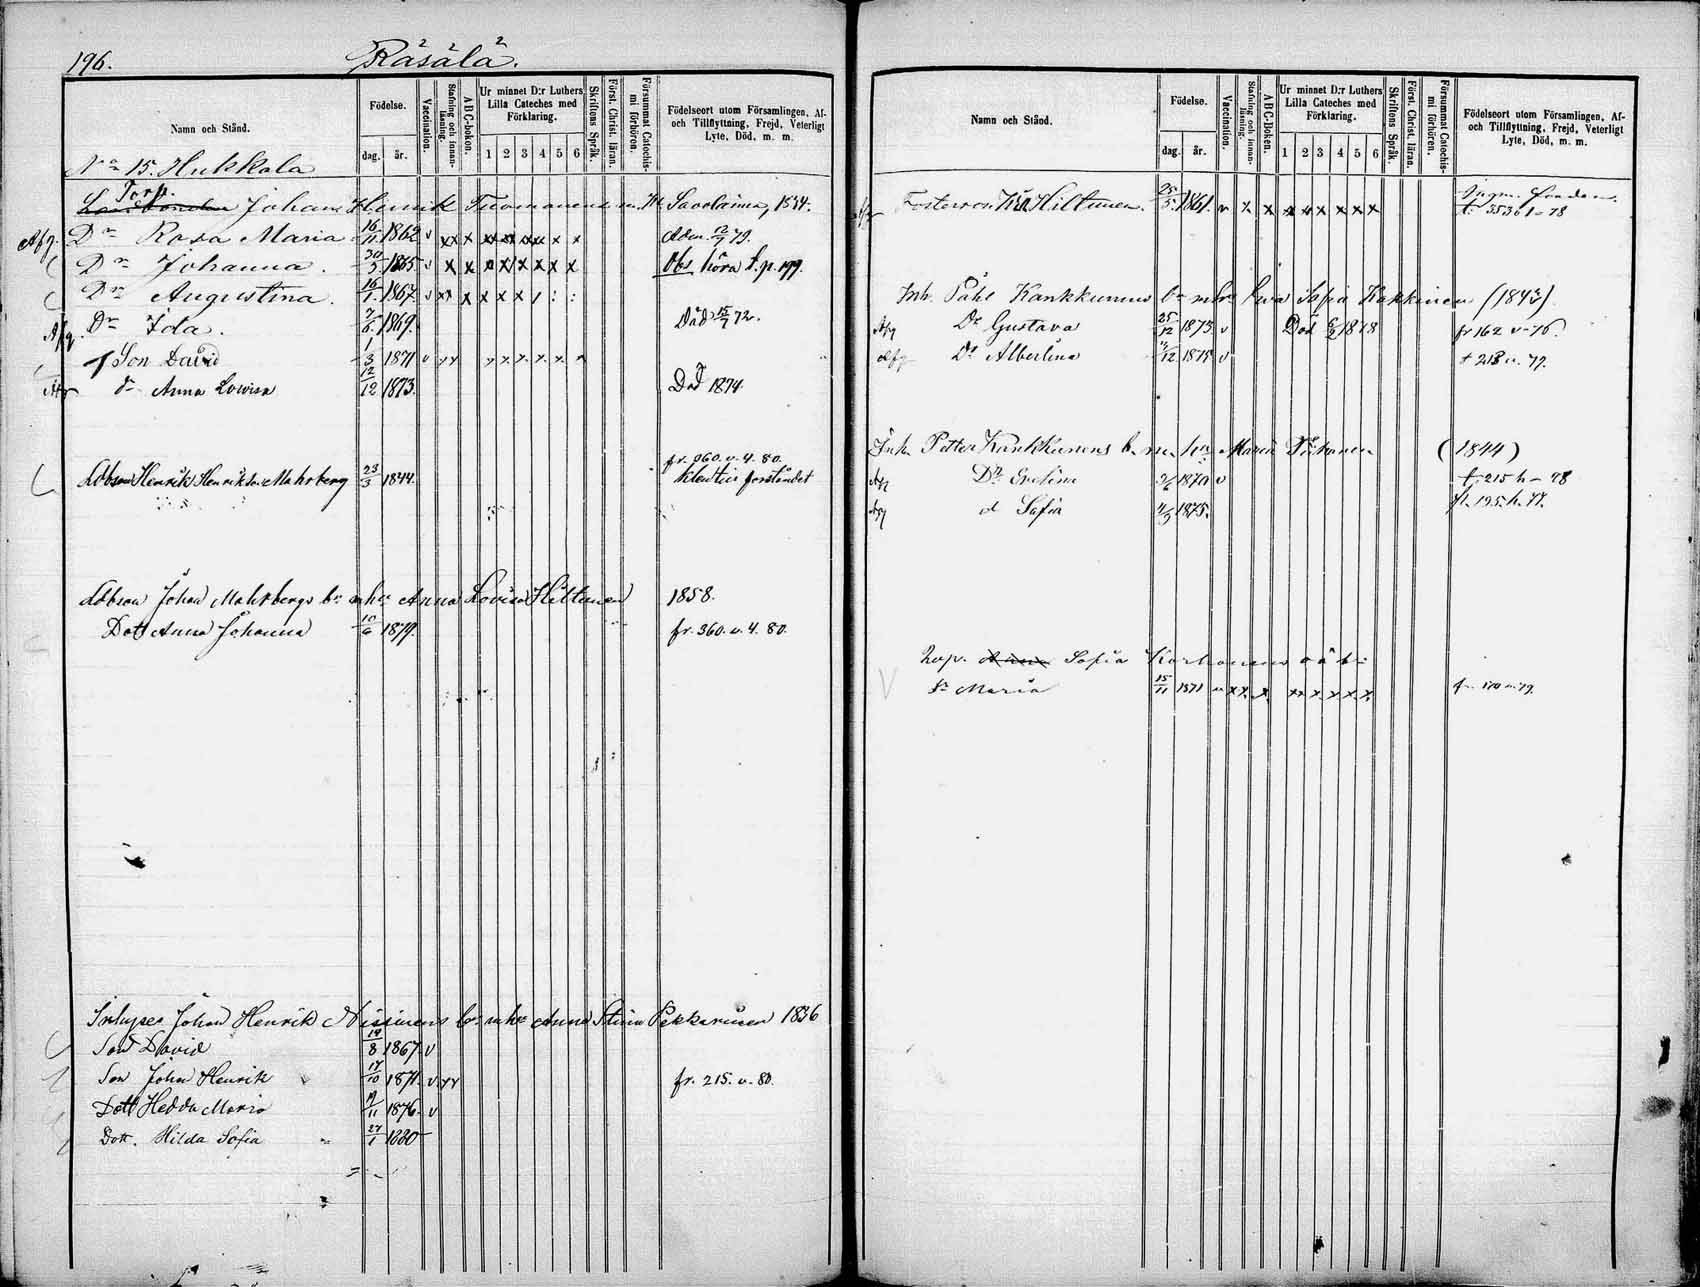 196.
Räsälä.
Namn och Stånd.
Födelse.
dag.
år.
Vaccination.
Stafning och innanläsning.
ABC-boken.
Ur minnet D:r Luthers Lilla Cateches med Förklaring.
1 2 3 4 5 6
Skriftens Språk.
Först. Christ. läran.
Försummat Catechismi förhören.
Födelseort utom Församlingen, Af- och Tillflyttning, Frejd, Veterligt Lyte, Död, m. m.
No 15. Hukkala
Torp.
Johan Henrik Tuomonens m. Savolaina, 1834.
Afg. Dr Rosa Maria 16/11 1862 v x x x Adm. 12/7 79.
Dr Johanna. 30/3 1865 v x x x x x x x x Obs höra t. p. 199.
Dr Augustina. 16/1 1867 v x x x x x
Afg Dr Ida. 7/6 1869. Död 15/7 72.
Son David 1/3 1871 v x x x x x x x x
Afg dr Anna Lovisa 12/12 1873. Död 1874
Henrik Henriksson Mahrberg 23/3 1844. fr. 360. v. 4. 80.
förståndet
Johan Mahrbergs br mhu Anna Lovisa Hiltunen 1858.
Dott Anna Johanna 10/6 1879. fr. 360. v. 4. 80.
Johan Henrik Nissinens br mhu Anna Stina Pekkarinen 1836
Son David 19/8 1867 v
Son Johan Henrik 17/10 1871. v x x fr. 215. v. 80.
Dott Hedda Maria 19/11 1876. v
Dott. Hilda Sofia 27/1 1880
Namn och Stånd.
Födelse.
dag.
år.
Vaccination.
Stafning och innanläsning.
ABC-boken.
Ur minnet D:r Luthers Lilla Cateches med Förklaring.
1 2 3 4 5 6
Skriftens Språk.
Först. Christ. läran.
Försummat Catechismi förhören.
Födelseort utom Församlingen, Af- och Tillflyttning, Frejd, Veterligt Lyte, Död, m. m.
Fosterson Hiltunen. 25/5 1861. v x x x x x x x x
Inh. Påhl Kankkunens br mhu Eva Sofia Kokkinen (1843)
Afg Dr Gustava 25/12 1873 v Död 1878 fr 162 v-76.
Afg Dr Albertina 1875 v t 218 v. 77.
Inh. Petter Kankkunens b. m. hu Maria (1844)
Afg Dr Evelina 1870 v t. 215 h-78
Afg d Sofia 1875. fl. 195. h. 77.
Sofia Korhonens o ä b:
dr Maria 15/11 1871 v x x. x. x x x. x. x. x.